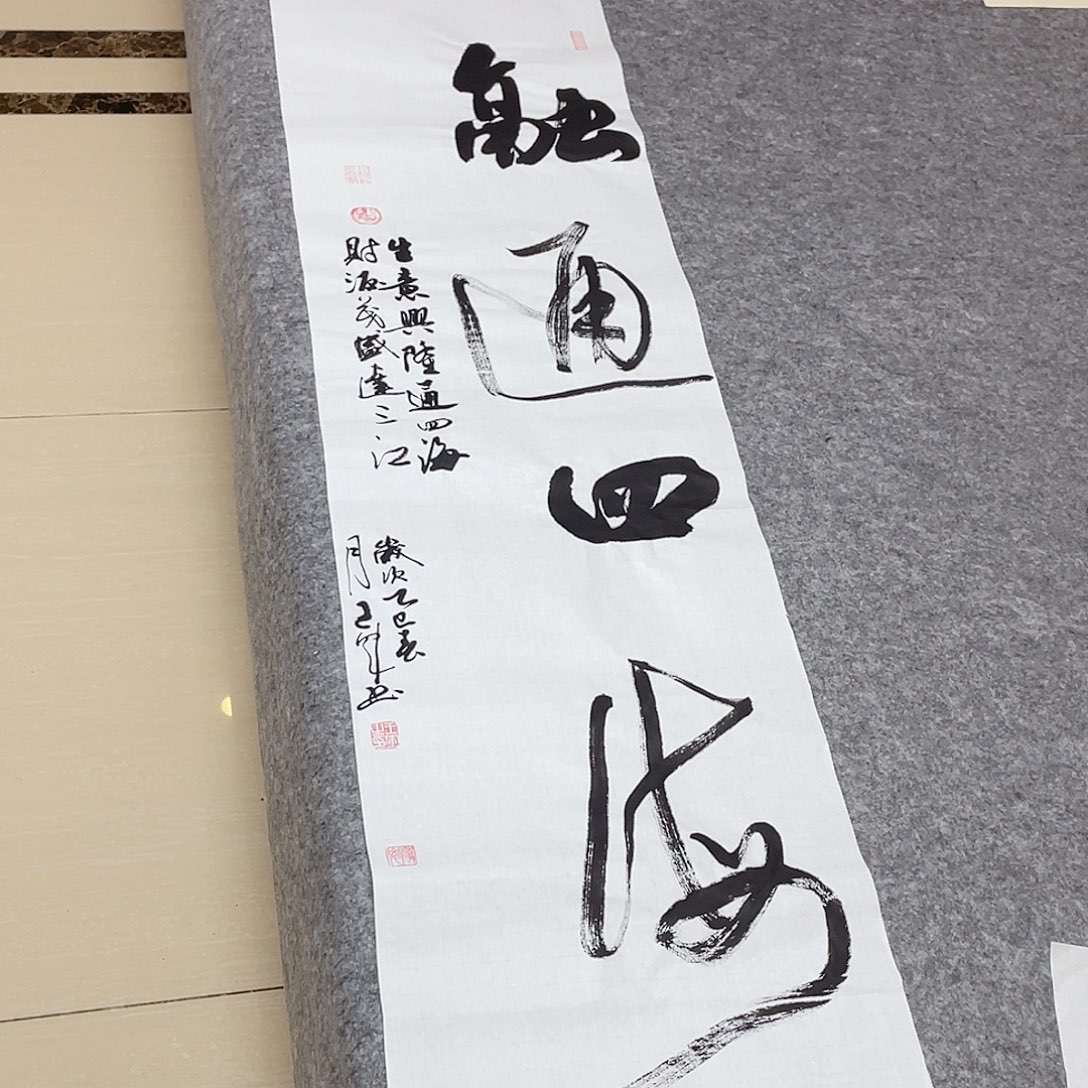 融通四海
生意興隆通四海
財源茂盛達三江
歲次乙巳春
月